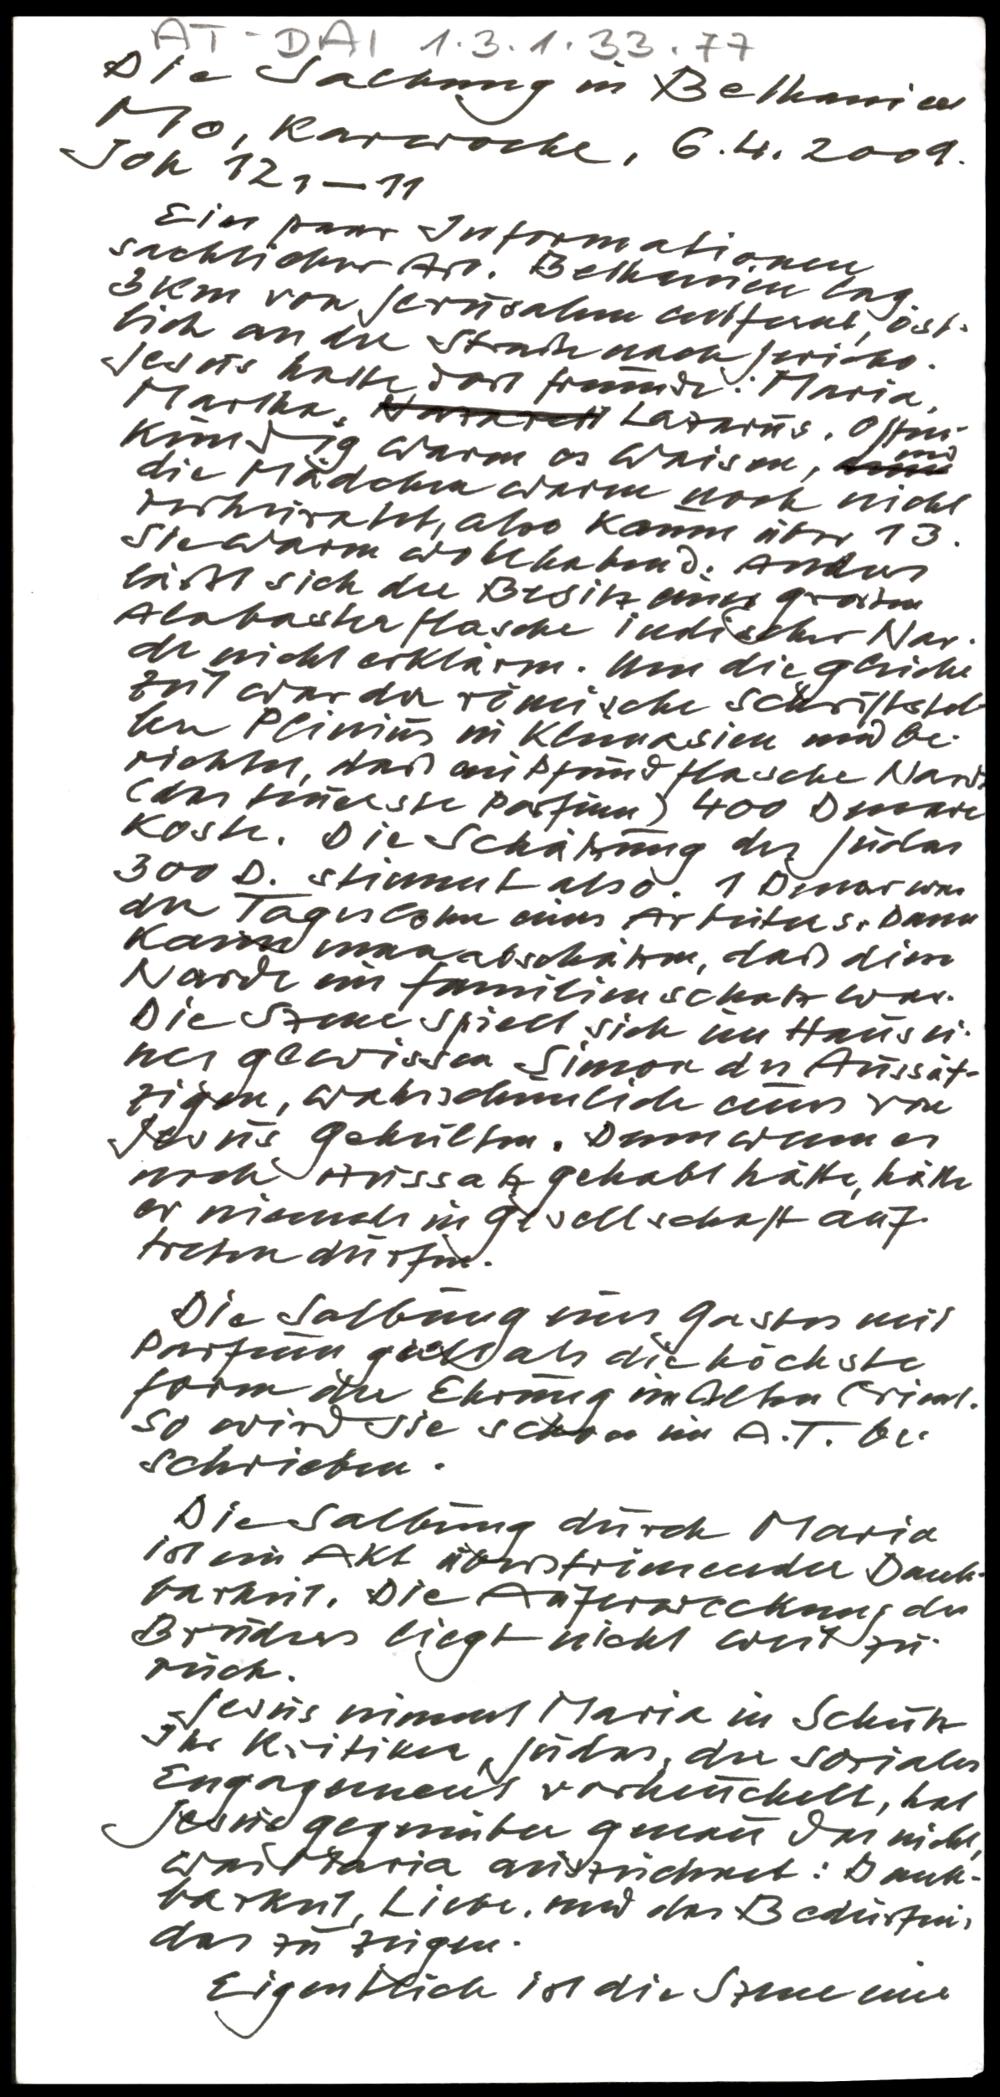 AT-DAI 1.3.1.33.77
Die Salbung in Bethanien
Mo, Karwoche, 6.4.2009.
Joh 12, 1-11
Ein paar Informationen
sachlicher Art. Bethanien lag
3 Km von Jerusalem entfernt, öst-
lich an der Straße nach Jericho.
Jesus hatte dort Freunde: Maria,
Martha, Lazarus. Offen-
kundig waren es Waisen, und
die Mädchen waren noch nicht
verheiratet, also kaum über 13.
Sie waren wohlhabend: Anders
läßt sich der Besitz einer großen
Alabasterflasche indischer Nar-
de nicht erklären. Um die gleiche
Zeit war der römische Schriftstel-
ler Plinius in Kleinasien und be-
richtet, daß ein Pfundflasche Narde
(das teuerste Parfum) 400 Denare
koste. Die Schätzung des Judas
300 D. stimmt also. 1 Denar war
der Tageslohn eines Arbeiters. Dann
kann man abschätzen, daß diese
Narde ein Familienschatz war.
Die Szene spielt sich im Haus ei-
nes gewissen Simon des Aussät-
zigen, wahrscheinlich eines von
Jesus Geheilten. Denn wenn er
noch Aussatz gehabt hätte, hätte
er niemals in Gesellschaft auf-
treten dürfen.
Die Salbung eines Gastes mit
Parfum gilt als die höchste
Form der Ehrung im Alten Orient.
So wird sie schon im A.T. be-
schrieben.
Die Salbung durch Maria
ist ein Akt überströmender Dank-
barkeit. Die Auferweckung des
Bruders liegt nicht weit zu-
rück.
Jesus nimmt Maria in Schutz
Ihr Kritiker, Judas, der soziales
Engagement vorheuchelt, hat
Jesus gegenüber genau das nicht,
was Maria auszeichnet: Dank-
barkeit, Liebe, und das Bedürfnis,
das zu zeigen.
Eigentlich ist die Szene eine